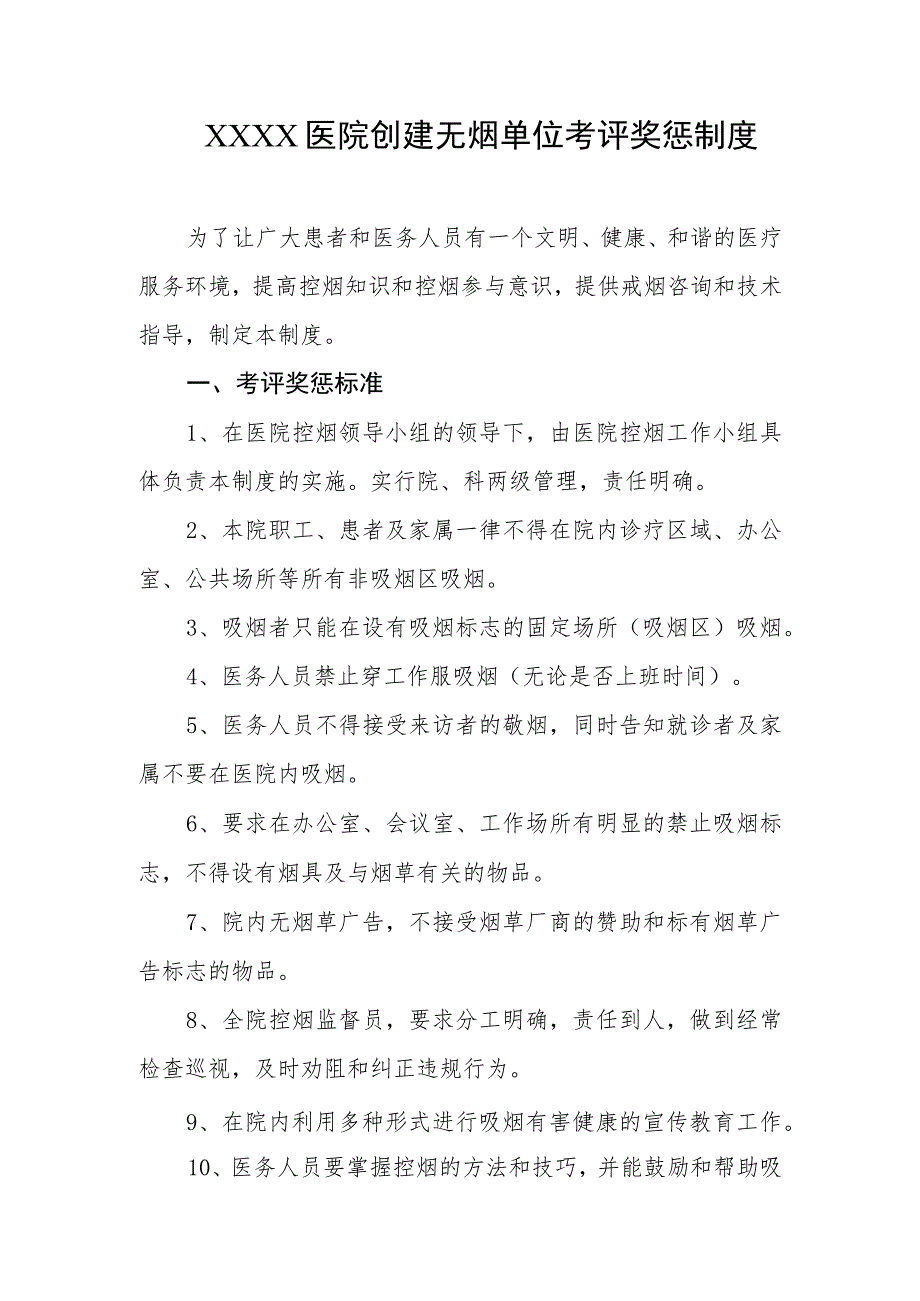 XXXX医院创建无烟单位考评奖惩制度
为了让广大患者和医务人员有一个文明、健康、和谐的医疗
服务环境，提高控烟知识和控烟参与意识，提供戒烟咨询和技术
指导，制定本制度。
一、考评奖惩标准
1、在医院控烟领导小组的领导下，由医院控烟工作小组具
体负责本制度的实施。实行院、科两级管理，责任明确。
2、本院职工、患者及家属一律不得在院内诊疗区域、办公
室、公共场所等所有非吸烟区吸烟。
3、吸烟者只能在设有吸烟标志的固定场所（吸烟区）吸烟。
4、医务人员禁止穿工作服吸烟（无论是否上班时间）。
5、医务人员不得接受来访者的敬烟，同时告知就诊者及家
属不要在医院内吸烟。
6、要求在办公室、会议室、工作场所有明显的禁止吸烟标
志，不得设有烟具及与烟草有关的物品。
7、院内无烟草广告，不接受烟草厂商的赞助和标有烟草广
告标志的物品。
8、全院控烟监督员，要求分工明确，责任到人，做到经常
检查巡视，及时劝阻和纠正违规行为。
9、在院内利用多种形式进行吸烟有害健康的宣传教育工作。
10、医务人员要掌握控烟的方法和技巧，并能鼓励和帮助吸